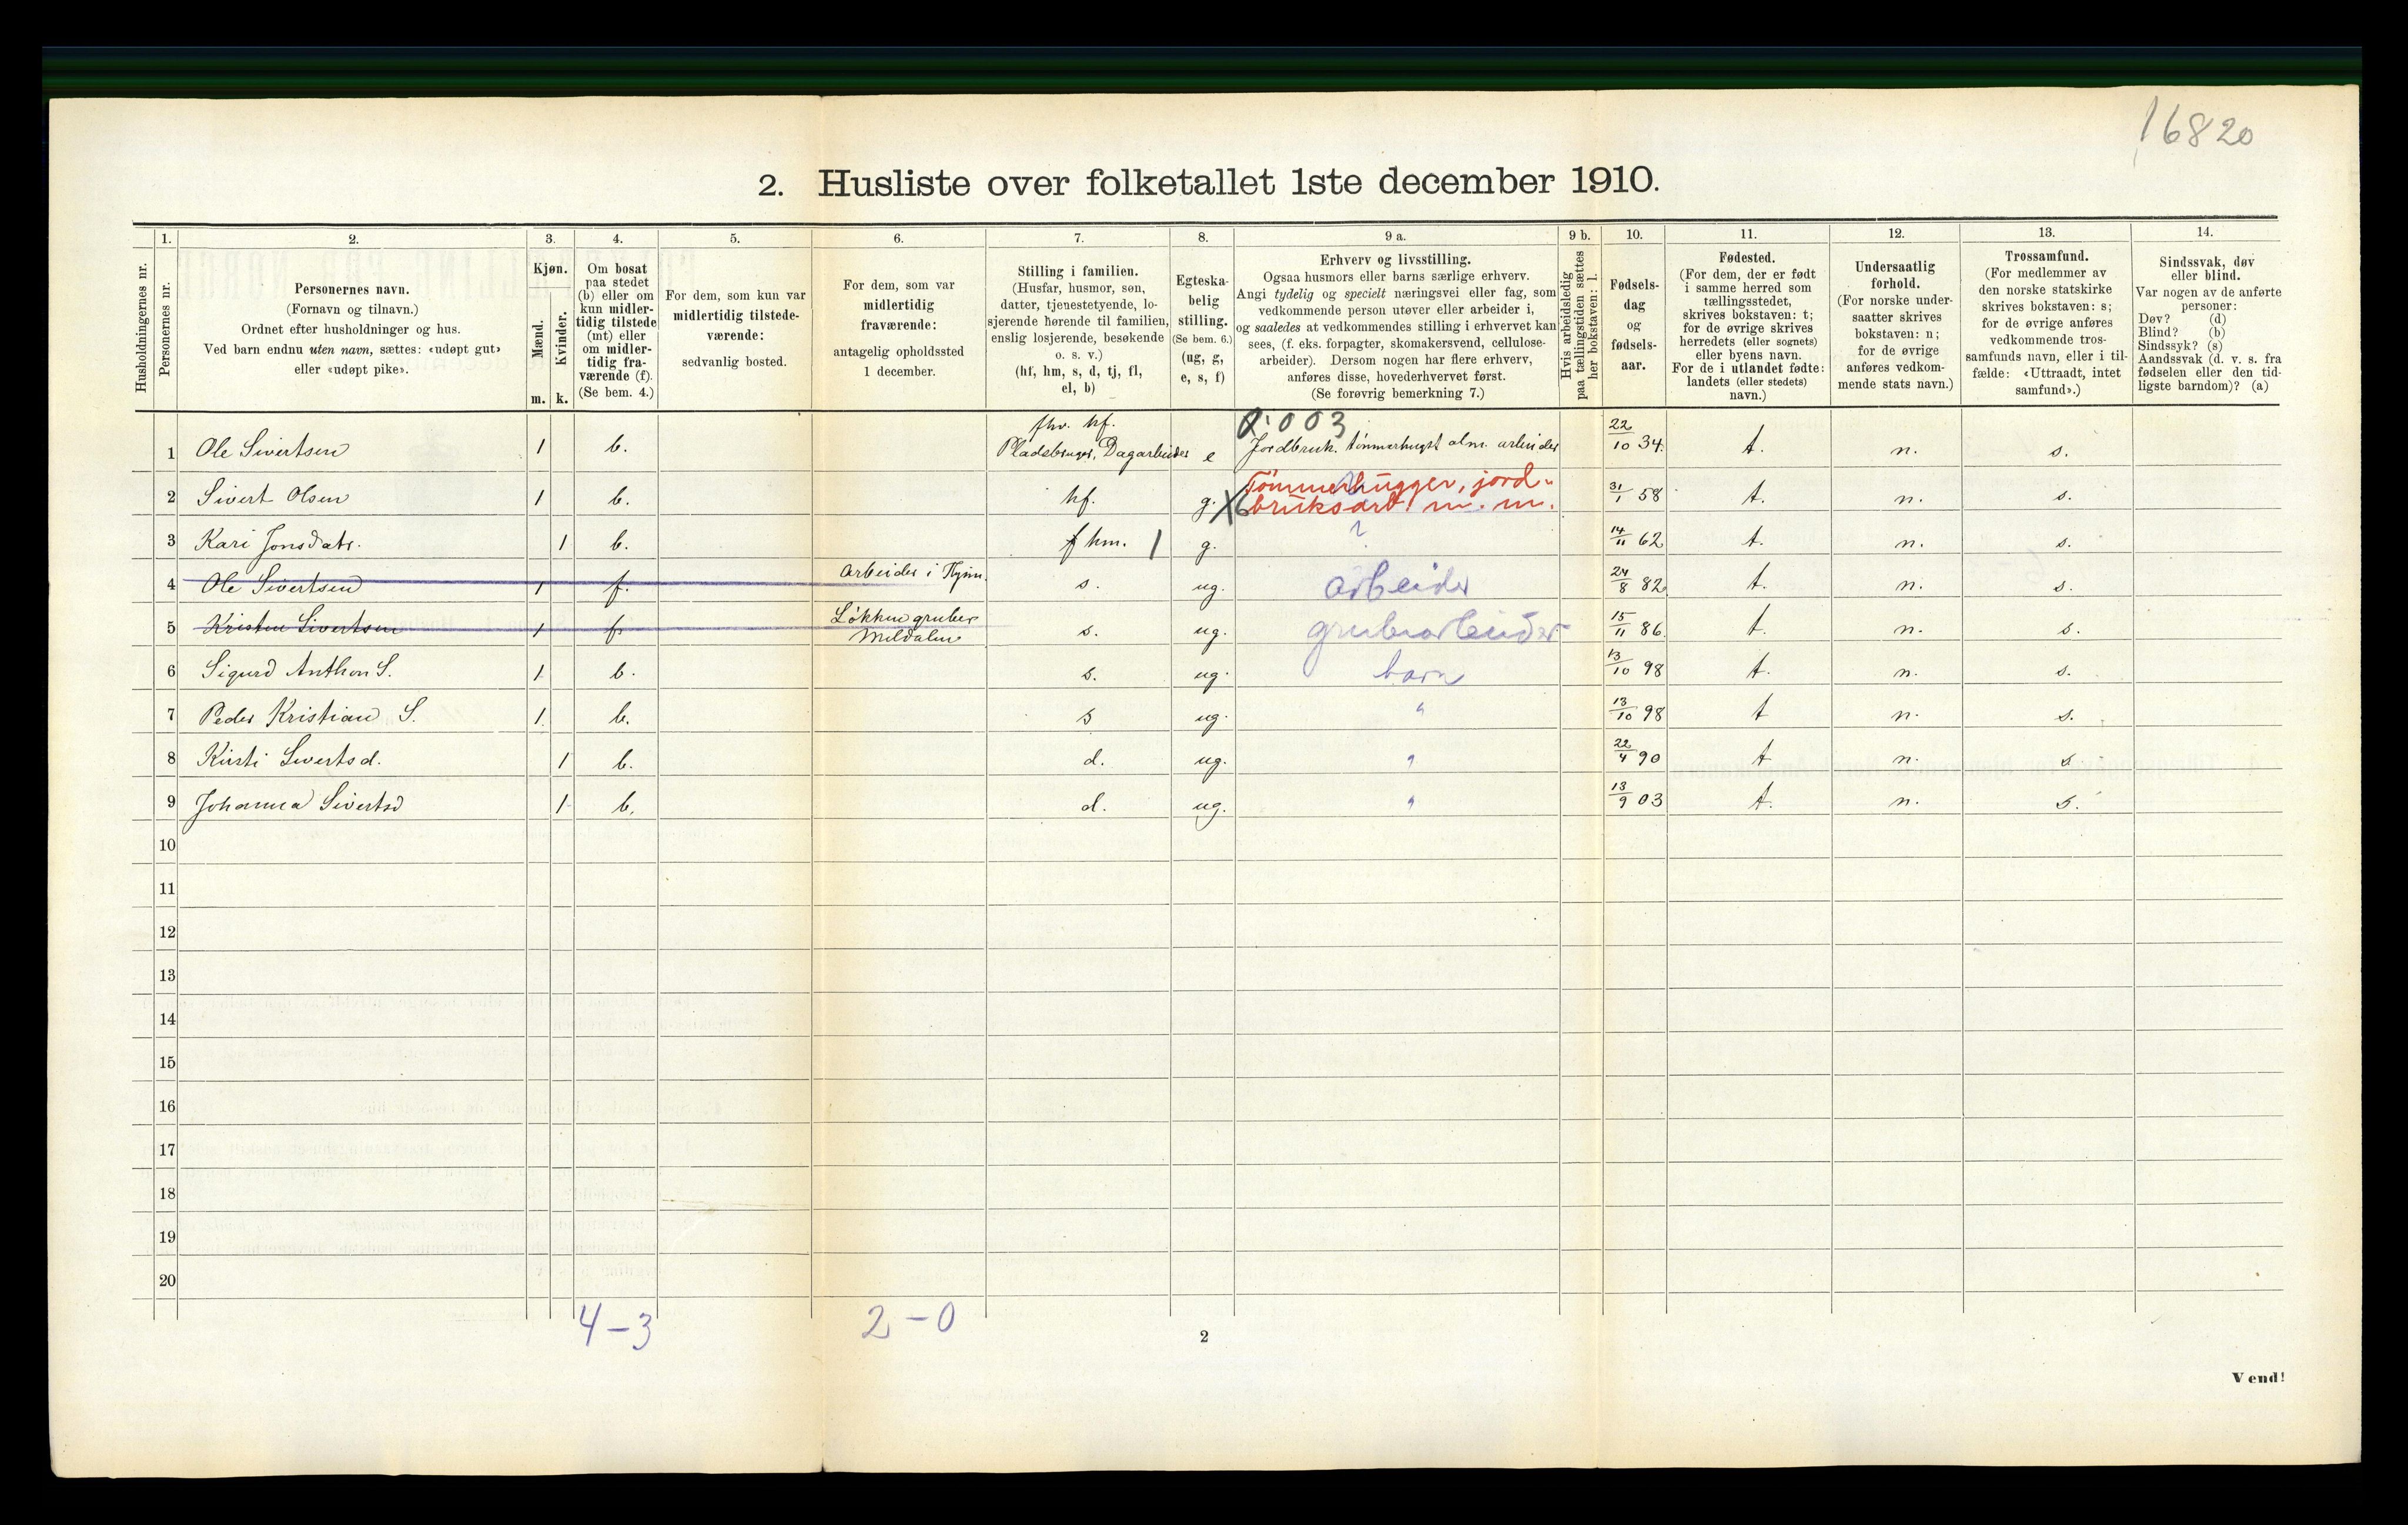 16820
2. Husliste over folketallet 1ste december 1910.
Husholdningernes nr.
1.
Personernes nr.
2.
Personernes navn.
(Fornavn og tilnavn.)
Ordnet efter husholdninger og hus.
Ved barn endnu uten navn, sættes: «udøpt gut»
eller «udøpt pike».
3.
Kjøn.
Mænd.
Kvinder.
m.
k.
4.
Om bosat
paa stedet
(b) eller om
kun midler-
tidig tilstede
(mt) eller
om midler-
tidig fra-
værende (f).
(Se bem. 4.)
5.
For dem, som kun var
midlertidig tilstede-
værende:
sedvanlig bosted.
6.
For dem, som var
midlertidig
fraværende:
antagelig opholdssted
1 december.
7.
Stilling i familien.
(Husfar, husmor, søn,
datter, tjenestetyende, lo-
sjerende hørende til familien,
enslig losjerende, besøkende
o. s. v.)
(hf, hm, s, d, tj, fl,
el, b)
8.
Egteska-
belig
stilling.
(Se bem. 6.)
(ug, g,
e, s, f)
9 a.
Erhverv og livsstilling.
Ogsaa husmors eller barns særlige erhverv.
Angi tydelig og specielt næringsvei eller fag, som
vedkommende person utøver eller arbeider i,
og saaledes at vedkommendes stilling i erhvervet kan
sees, (f. eks. forpagter, skomakersvend, cellulose-
arbeider). Dersom nogen har flere erhverv,
anføres disse, hovederhvervet først.
(Se forøvrig bemerkning 7.)
9 b.
Hvis arbeidsledig
paa tællingstiden sættes
her bokstaven: l.
10.
Fødsels-
dag
og
fødsels-
aar.
11.
Fødested.
(For dem, der er født
i samme herred som
tællingsstedet,
skrives bokstaven: t;
for de øvrige skrives
herredets (eller sognets)
eller byens navn.
For de i utlandet fødte:
landets (eller stedets)
navn.)
12.
Undersaatlig
forhold.
(For norske under-
saatter skrives
bokstaven: n;
for de øvrige
anføres vedkom-
mende stats navn.)
13.
Trossamfund.
(For medlemmer av
den norske statskirke
skrives bokstaven: s;
for de øvrige anføres
vedkommende tros-
samfunds navn, eller i til-
fælde: «Uttraadt, intet
samfund».)
14.
Sindssvak, døv
eller blind.
Var nogen av de anførte
personer:
Døv? (d)
Blind? (b)
Sindssyk? (s)
Aandssvak (d. v. s. fra
fødselen eller den tid-
ligste barndom)? (a)
fhv. hf. 0.003
1 Ole Sivertsen 1 b. Pladsbruger, Dagarbeider e Jordbruk. tømmerhugst alm. arbeider 22/10 34. t. n. s.
2 Sivert Olsen 1 b. hf. g. X6 Tømmerhugger, jord-
bruksarb. m. m. 31/1 58 t. n. s.
3 Kari Jonsdatr. 1 b. f hm. 1 g. 14/11 62 t. n. s.
4 Ole Sivertsen 1 f. Arbeider i s. ug. arbeider 24/8 82 t. n. s.
5 Kristen Sivertsen 1 f. Løkken gruber
Meldalen s. ug. grubearbeider 15/11 86. t. n. s.
6 Sigurd Anthon S. 1 b. s. ug. barn 13/10 98 t. n. s.
7 Peder Kristian S. 1 b. s ug. " 13/10 98 t n. s.
8 Kirsti Sivertsd. 1 b. d. ug. " 22/4 90 t n. s
9 Johanna Sivertsd 1 b. d. ug. " 13/9 03 t. n. s.
10
11
12
13
14
15
16
17
18
19
20
4-3 2-0
2
Vend!